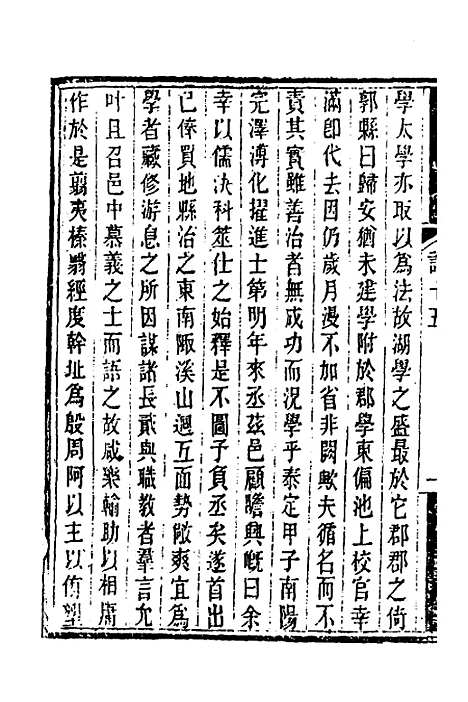 學太學亦取以爲法故湖學之盛最於它郡郡之倚
郭縣曰歸安猶未建學附於郡學東偏池上校官幸
滿卽代去因仍歲月漫不加省非闕歟夫循名而不
責其實雖善治者無成功而況學乎泰定甲子南陽
完澤溥化擢進士第明年來丞茲邑顧瞻興嘅曰余
幸以儒決科筮仕之始釋是不圖予負丞矣遂首出
已俸買地縣治之東南陬溪山廻互面勢敞爽宜爲
學者藏修游息之所因謀諸長貳與職教者羣言允
叶且召邑中慕義之士而語之故咸樂輸助以相
作於是翦夷榛翳經度幹址爲殷周阿以主以侑塑